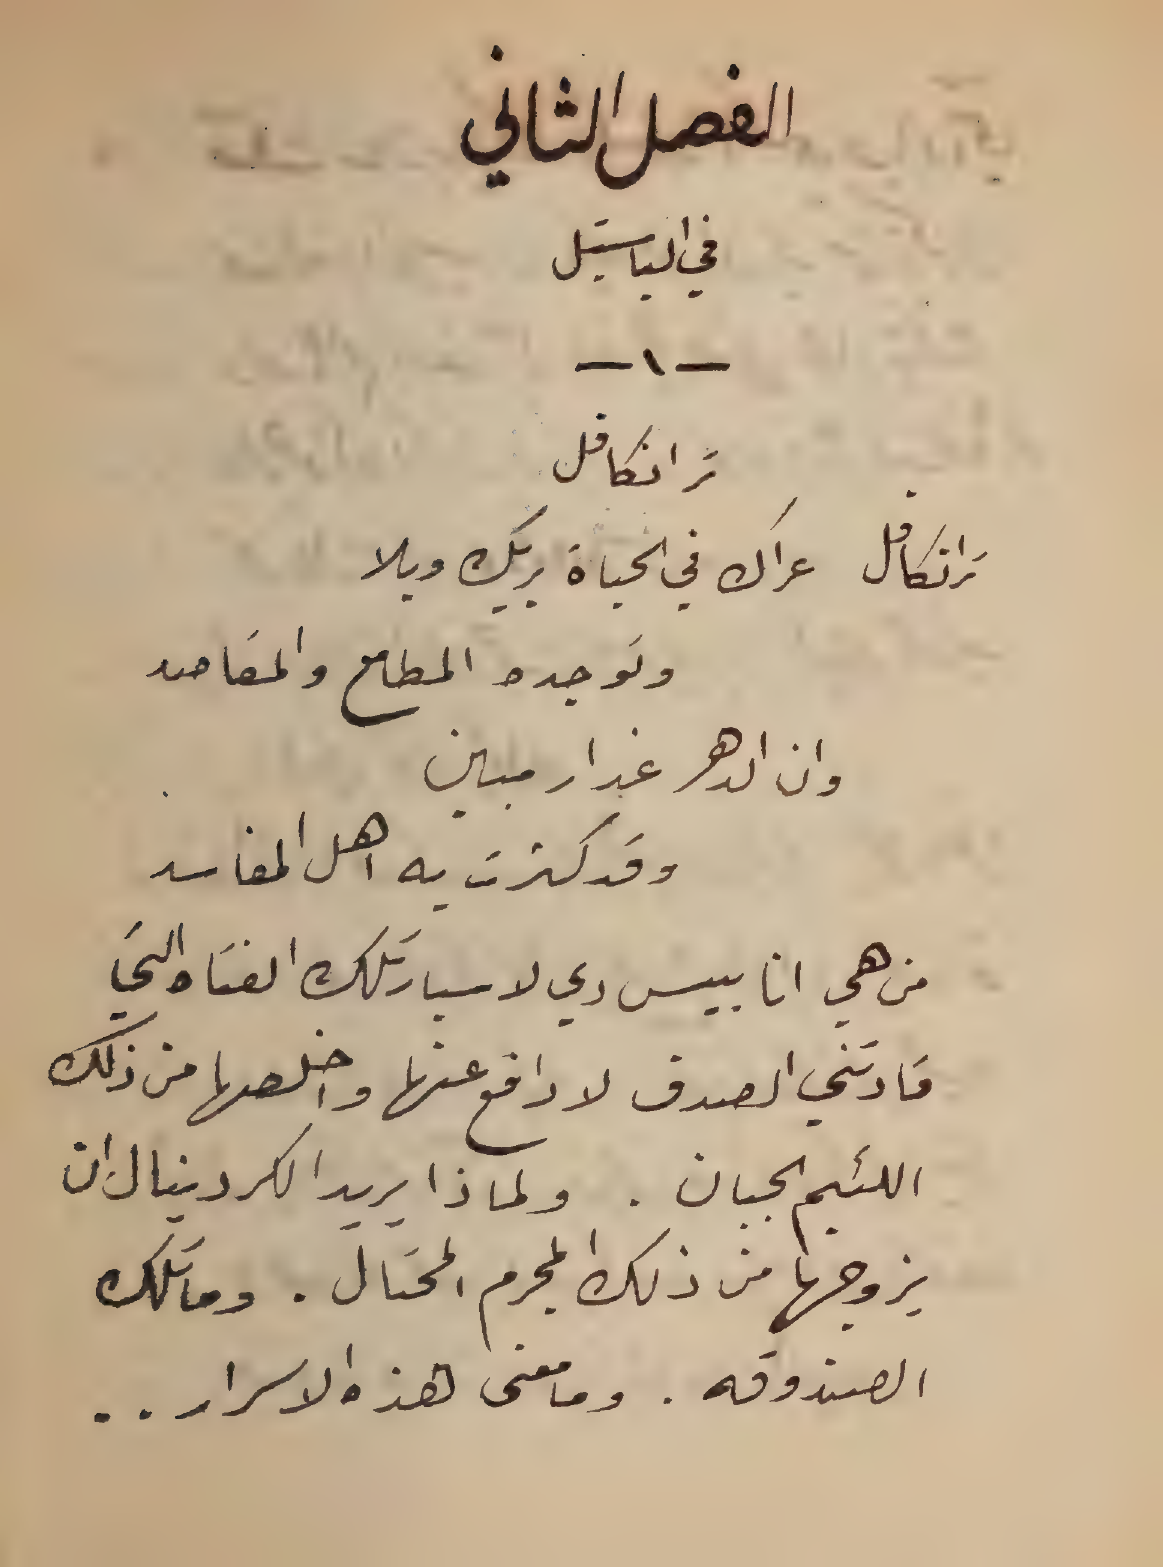 الفصل الثاني
في الباستيل
— ١ —
ترانكافل
ترانكافل عراك في الحياة يريك ويلا
وتوجده المطامع والمقاصد
وان الدهر غدار مبين
وقد كثرت به اهل المفاسد
من هي انا بيس دي لاسبار تلك الفتاه التي
قادتني الصدف لادافع عنها واخلصها من ذلك
اللئيم الجبان . ولماذا يريد الكردينال ان
يزوجها من ذلك المجرم المحتال . وما تلك
الصندوقه . وما معنى هذه الاسرار . .